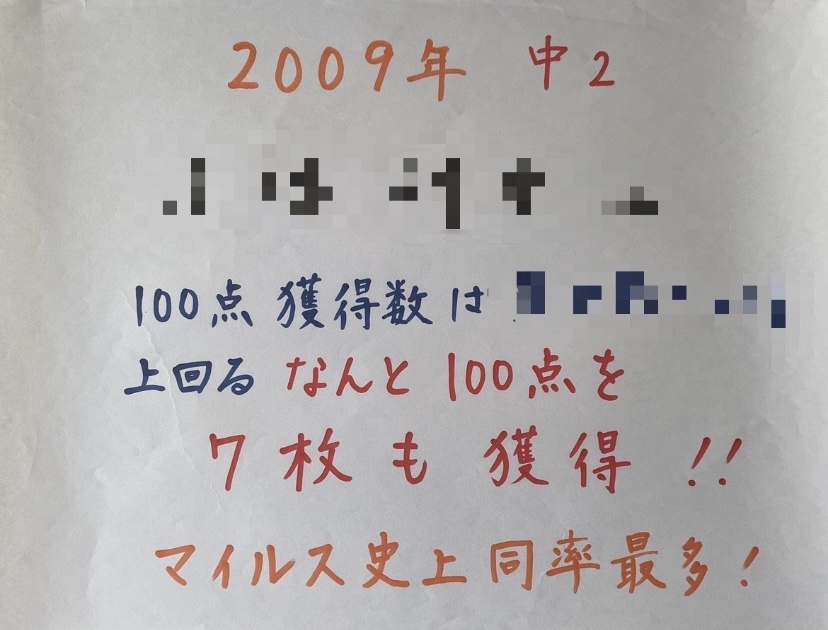 2009年 中2
100点 獲得数は
上回る なんと 100点を
7枚も獲得!!
マイルス史上同率最多!